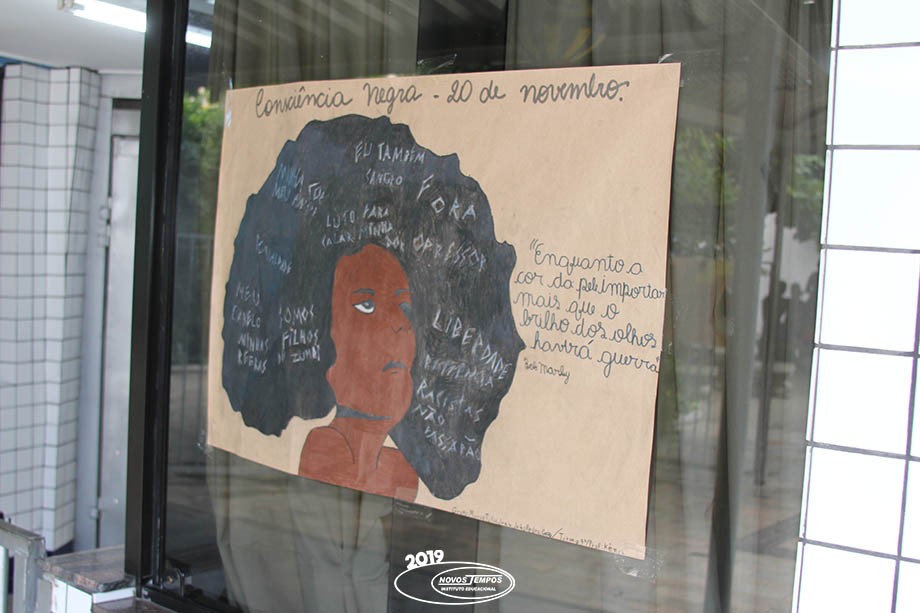 Consciência Negra - 20 de novembro.
EU TAMBÉM
SANGRO
FORA
OPRESSOR
LUTO PARA
CALAR MINHA
DOR
MEU
CABELO
MINHAS
REGRAS
SOMOS
FILHOS
DE ZUMBI
LIBERDADE
RACISTAS
NÃO
PASSARÃO
"Enquanto a
cor da pele importar
mais que o
brilho dos olhos
haverá guerra"
Bob Marley
2019
NOVOS TEMPOS
INSTITUTO EDUCACIONAL